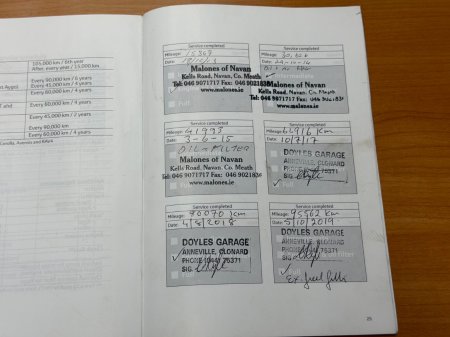 105,000 km / 6th year
After, every year / 15,000 km
Every 90,000 km / 6 years
Every 45,000 km / 2 years
Every 60,000 km / 4 years
Every 45,000 km / 2 years
Every 90,000 km
Every 60,000 km / 4 years
Corolla, Avensis and RAV4
Service completed
Mileage:
Date:
Malones of Navan
Kells Road, Navan, Co. Meath
Tel: 046 9071717 Fax: 046 9021838
www.malones.ie
Full
Service completed
Mileage:
Date:
Intermediate
Malones of Navan
Kells Road, Navan, Co. Meath
Tel: 046 9071717 Fax: 046 9021838
www.malones.ie
Full
Service completed
Mileage: 41993
Date: 3-6-15
OIL + FILTER
Malones of Navan
Kells Road, Navan, Co. Meath
Tel: 046 9071717 Fax: 046 9021838
www.malones.ie
Service completed
Mileage: Km
Date: 10/7/17
DOYLES GARAGE
ANNEVILLE, CLONARD
PHONE (044) 75371
SIG
Full
Service completed
Mileage: 90070 Km
Date: 4/8/2018
DOYLES GARAGE
ANNEVILLE, CLONARD
PHONE (044) 75371
SIG
Service completed
Mileage: 95562 Km
Date: 5/10/2019
DOYLES GARAGE
ANNEVILLE, CLONARD
PHONE (044) 75371
SIG
Full
25